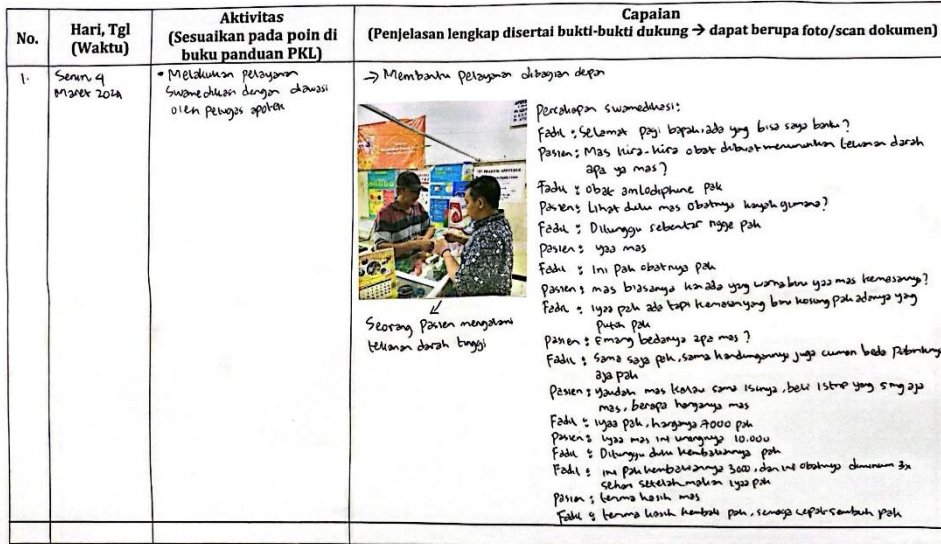 No.
Hari, Tgl
(Waktu)
Aktivitas
(Sesuaikan pada poin di
buku panduan PKL)
Capaian
(Penjelasan lengkap disertai bukti-bukti dukung → dapat berupa foto/scan dokumen)
1.
Senin 4
Maret 2024
• Melakukan pelayanan
Swamedikasi dengan diawasi
oleh petugas apotek
→ Membantu pelayanan dibagian depan
Seorang Pasien mengalami
tekanan darah tinggi
Percakapan swamedikasi:
Fadil : Selamat pagi bapak, ada yang bisa saya bantu?
Pasien : Mas kira-kira obat dibuat menurunkan tekanan darah
apa ya mas?
Fadil : obat amlodiphine pak
Pasien : Lihat dulu mas obatnya kayak gimana?
Fadil : Ditunggu sebentar ngge pak
Pasien : yaa mas
Fadil : Ini pak obatnya pak
Pasien : mas biasanya kan ada yang warna biru yaa mas kemasannya?
Fadil : iyaa pak ada tapi kemasan yang biru kosong pak adanya yang
putih pak
Pasien : Emang bedanya apa mas?
Fadil : Sama saja pak, sama kandungannya juga cuman beda Pabriknya
aja pak
Pasien : yaudah mas kalau sama isinya, beli 1 strip yang 5 mg aja
mas, berapa harganya mas
Fadil : iyaa pak, harganya 7000 pak
Pasien : iyaa mas ini uangnya 10.000
Fadil : Ditunggu dulu kembaliannya pak
Fadil : ini pak kembaliannya 3000, dan ini obatnya diminum 3x
sehari setelah makan iyaa pak
Pasien : terima kasih mas
Fadil : terima kasih kembali pak, semoga cepat sembuh pak